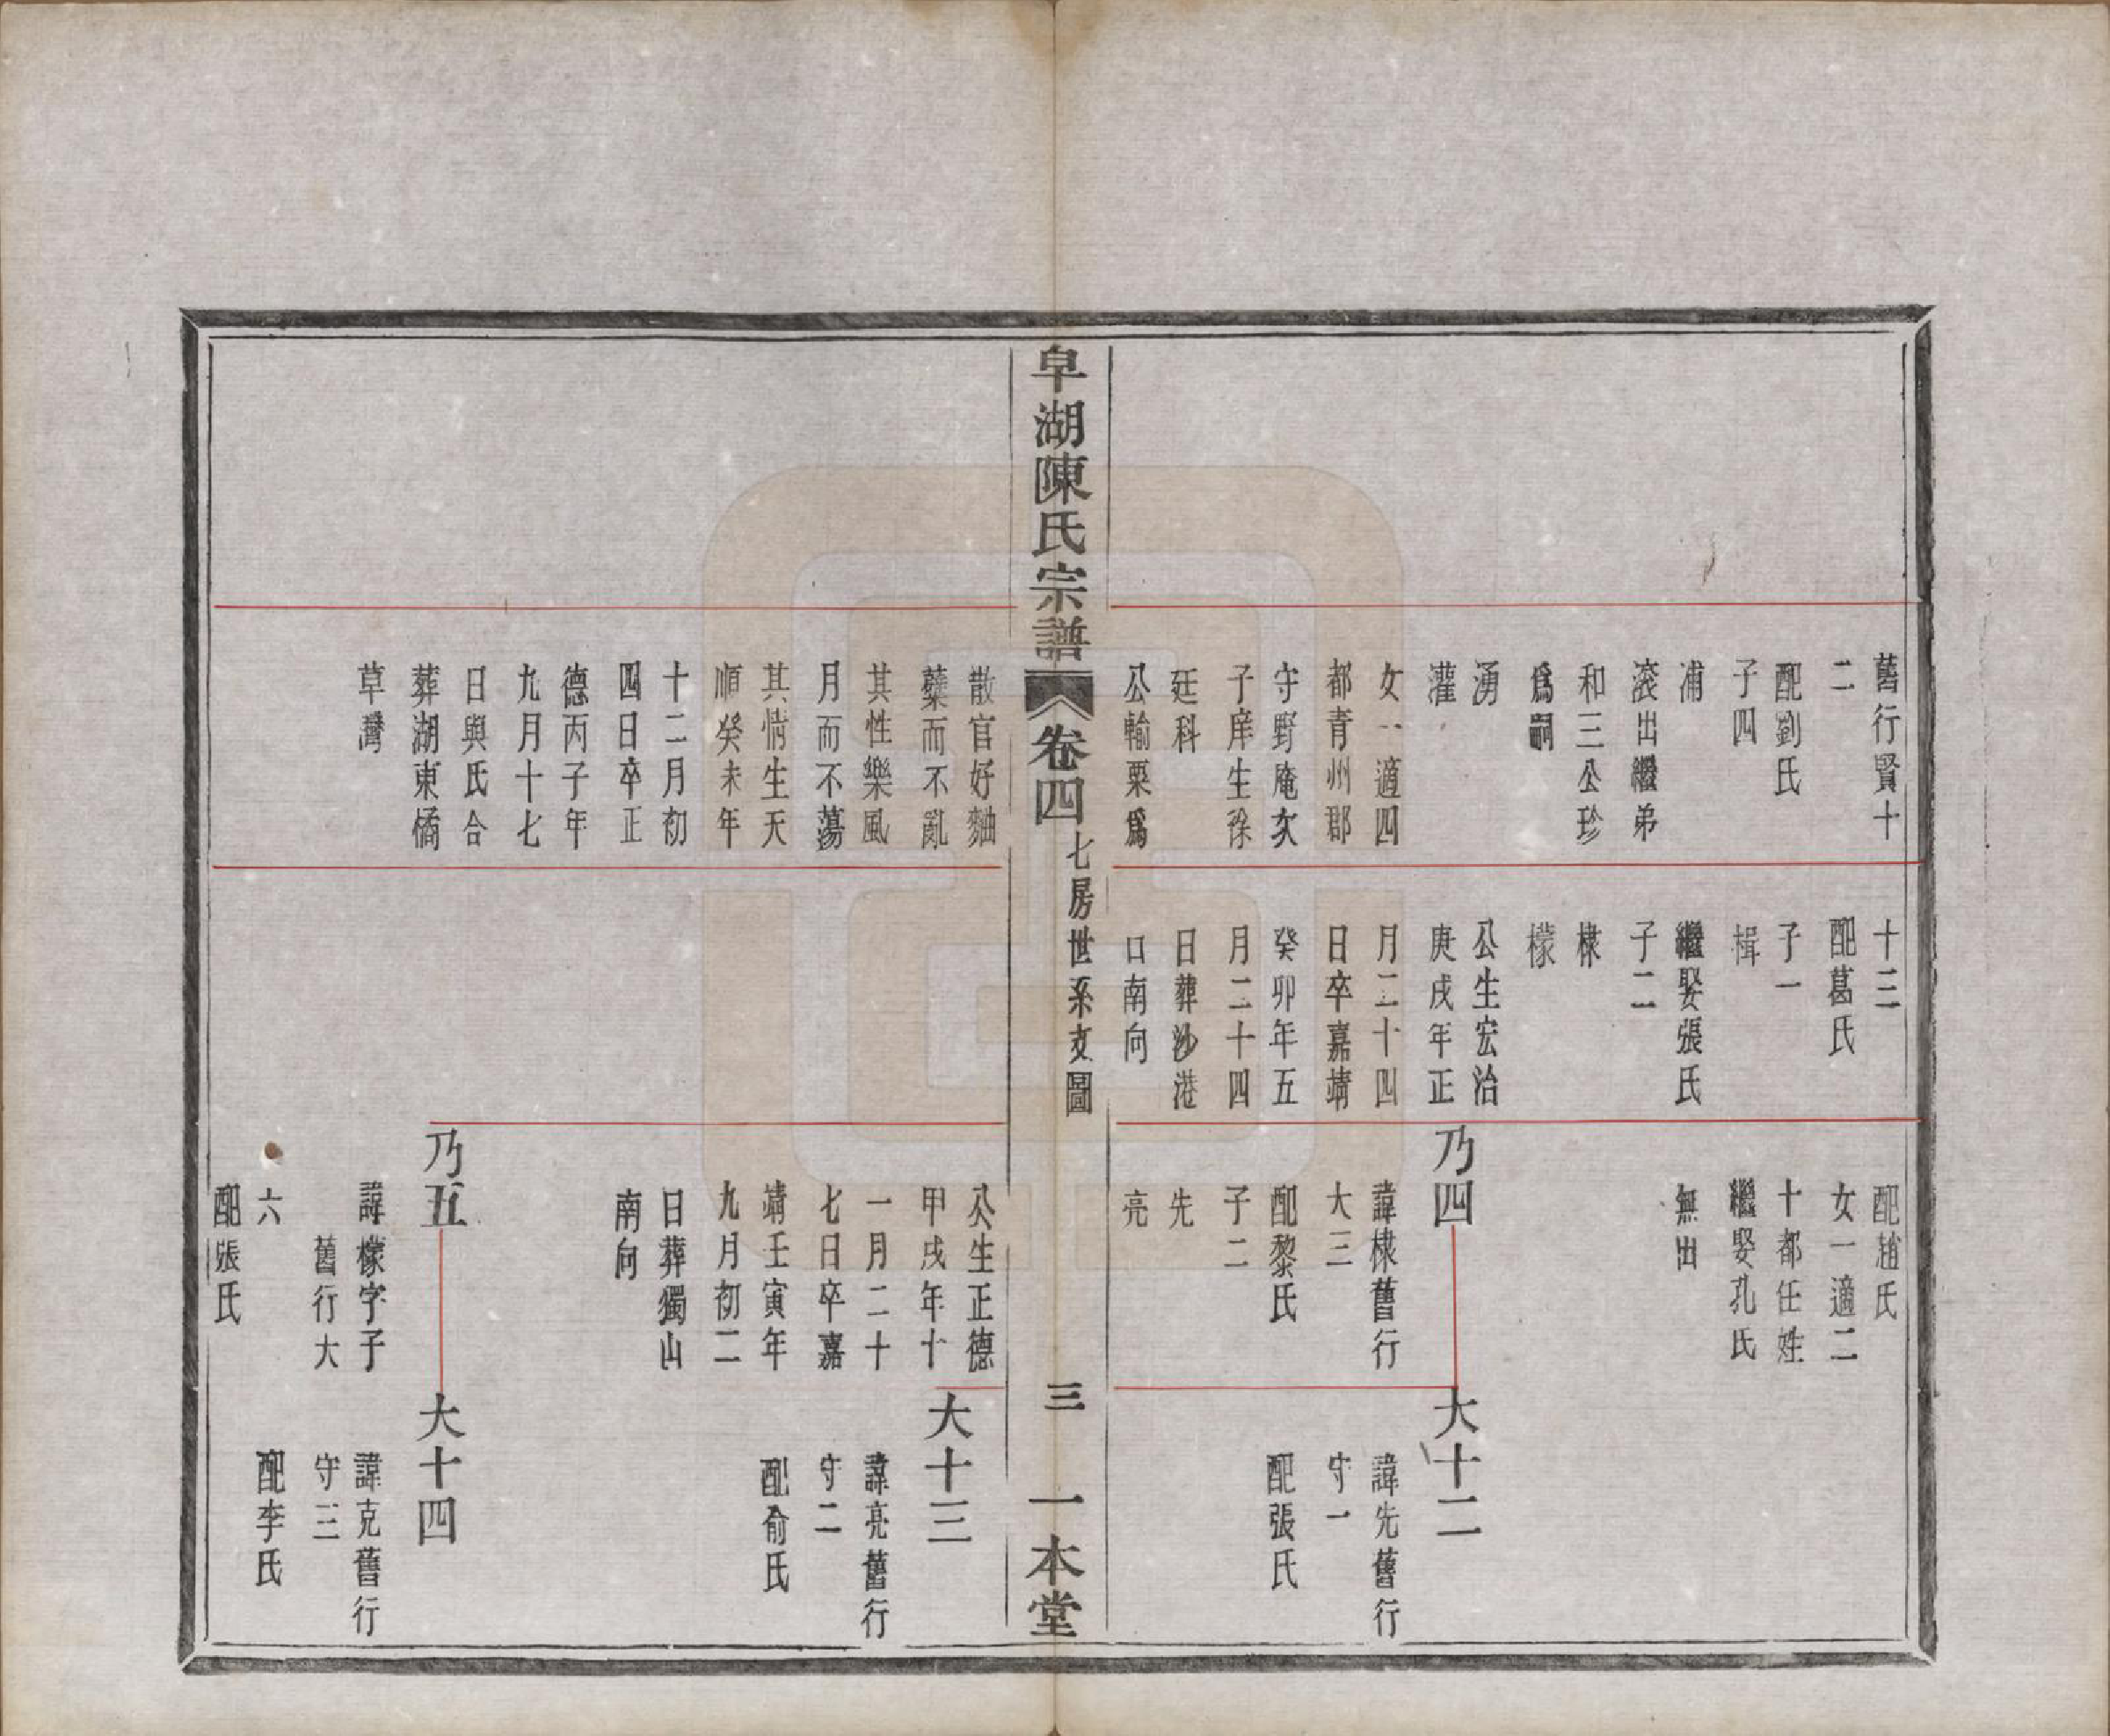 舊行賢十
二
配劉氏
子四
浦
滚出繼弟
和三公珍
爲嗣
湧
灌
女一適四
都青州郡
守野庵次
子庠生徐
廷科
公輸粟爲
十三
配葛氏
子一
楫
繼娶張氏
子二
棣
檬
公生宏治
庚戌年正
月二十四
日卒嘉靖
癸卯年五
月二十四
日葬沙港
口南向
配趙氏
女一適二
十都任姓
繼娶孔氏
無出
乃四
諱棣舊行
大三
配黎氏
子二
先
亮
大十二
諱先舊行
守一
配張氏
皁湖陳氏宗譜
卷四
七房世系支圖
三
一本堂
散官好麯
蘗而不亂
其性樂風
月而不蕩
其情生天
順癸未年
十二月初
四日卒正
德丙子年
九月十七
日與氏合
葬湖東橋
草灣
公生正德
甲戌年十
一月二十
七日卒嘉
靖壬寅年
九月初二
日葬獨山
南向
乃五
諱檬字子
舊行大
六
配張氏
大十三
諱亮舊行
守二
配俞氏
大十四
諱克舊行
守三
配李氏